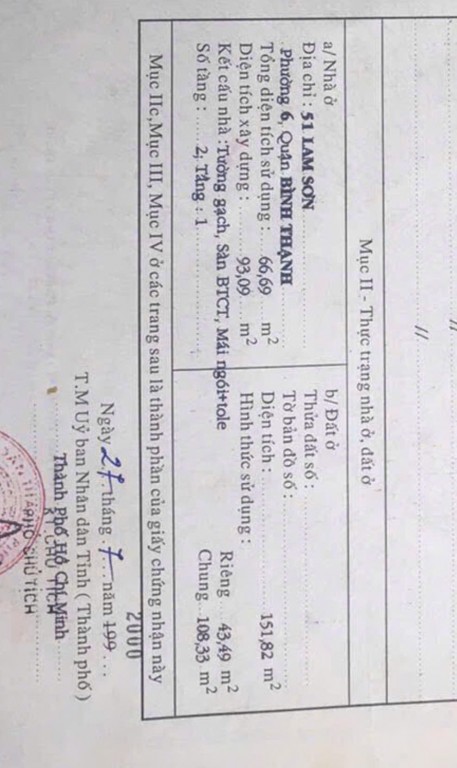 //
//
Mục II - Thực trạng nhà ở, đất ở
a/ Nhà ở
Địa chỉ : 51 LAM SƠN
Phường 6, Quận BÌNH THẠNH
Tổng diện tích sử dụng : 66,69 m²
Diện tích xây dựng : 93,09 m²
Kết cấu nhà : Tường gạch, Sàn BTCT, Mái ngói+tole
Số tầng : 2, Tầng : 1
b/ Đất ở
Thửa đất số :
Tờ bản đồ số :
Diện tích : 151,82 m²
Hình thức sử dụng :
Riêng 43,49 m²
Chung 108,33 m²
Mục IIc, Mục III, Mục IV ở các trang sau là thành phần của giấy chứng nhận này
2000
Ngày 27 tháng 7 năm 199
T.M Uỷ ban Nhân dân Tỉnh ( Thành phố )
Thành phố Hồ Chí Minh
KT CHỦ TỊCH
PHÓ CHỦ TỊCH